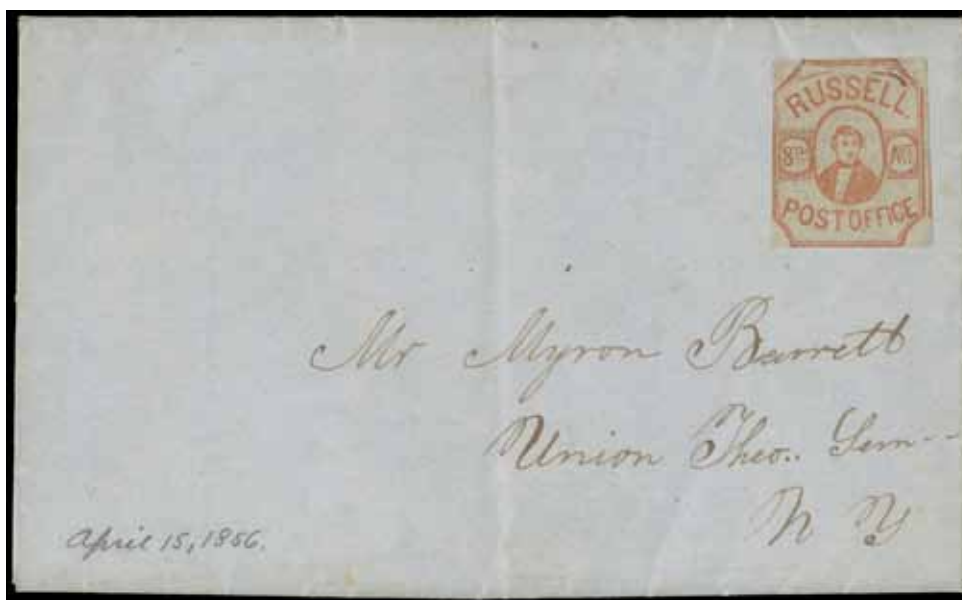 RUSSELL
8TH AVE.
POST OFFICE
Mr Myron Barrett
Union Theo. Sem--
N Y
April 15, 1856.